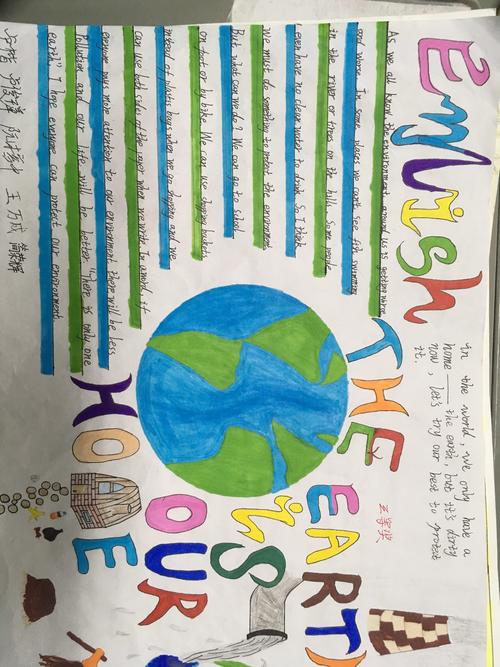 English
As we all know, the environment around us is getting worse
and worse. In some places we can't see fish swimming
in the river or trees on the hills. Some people
even have no clean water to drink. So I think
we must do something to protect the environment.
But what can we do? We can go to school
on foot or by bike. We can use shopping baskets
instead of plastic bags when we go shopping and we
can use both sides of the paper when we write. In a word, if
everyone pays more attention to our environment, there will be less
pollution and our life will be better. "There is only one
earth". I hope everyone can protect our environment.
in the world, we only have a
home —— the earth, but it's dirty
now, let's try our best to protect
it.
THE EARTH
IS
OUR
HOME